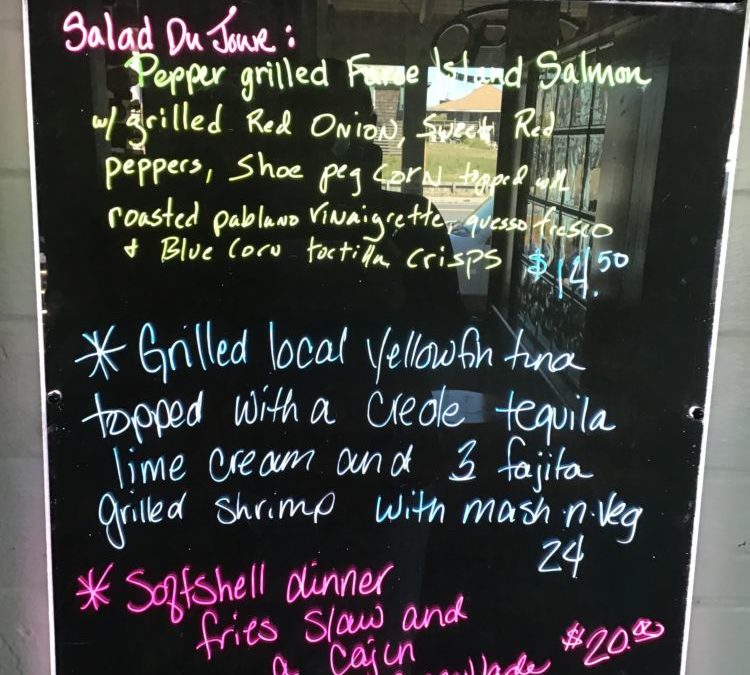 Salad Du Jour :
Pepper grilled Faroe Island Salmon
w/ grilled Red Onion, Sweet Red
peppers, Shoe peg Corn topped with
roasted pablano vinaigrette, quesso fresco
+ Blue Corn tortilla crisps $14.50
* Grilled local Yellowfin tuna
topped with a Creole tequila
lime cream and 3 fajita
grilled shrimp with mash n veg
24
* Softshell dinner
fries slaw and
a Cajun $20.00